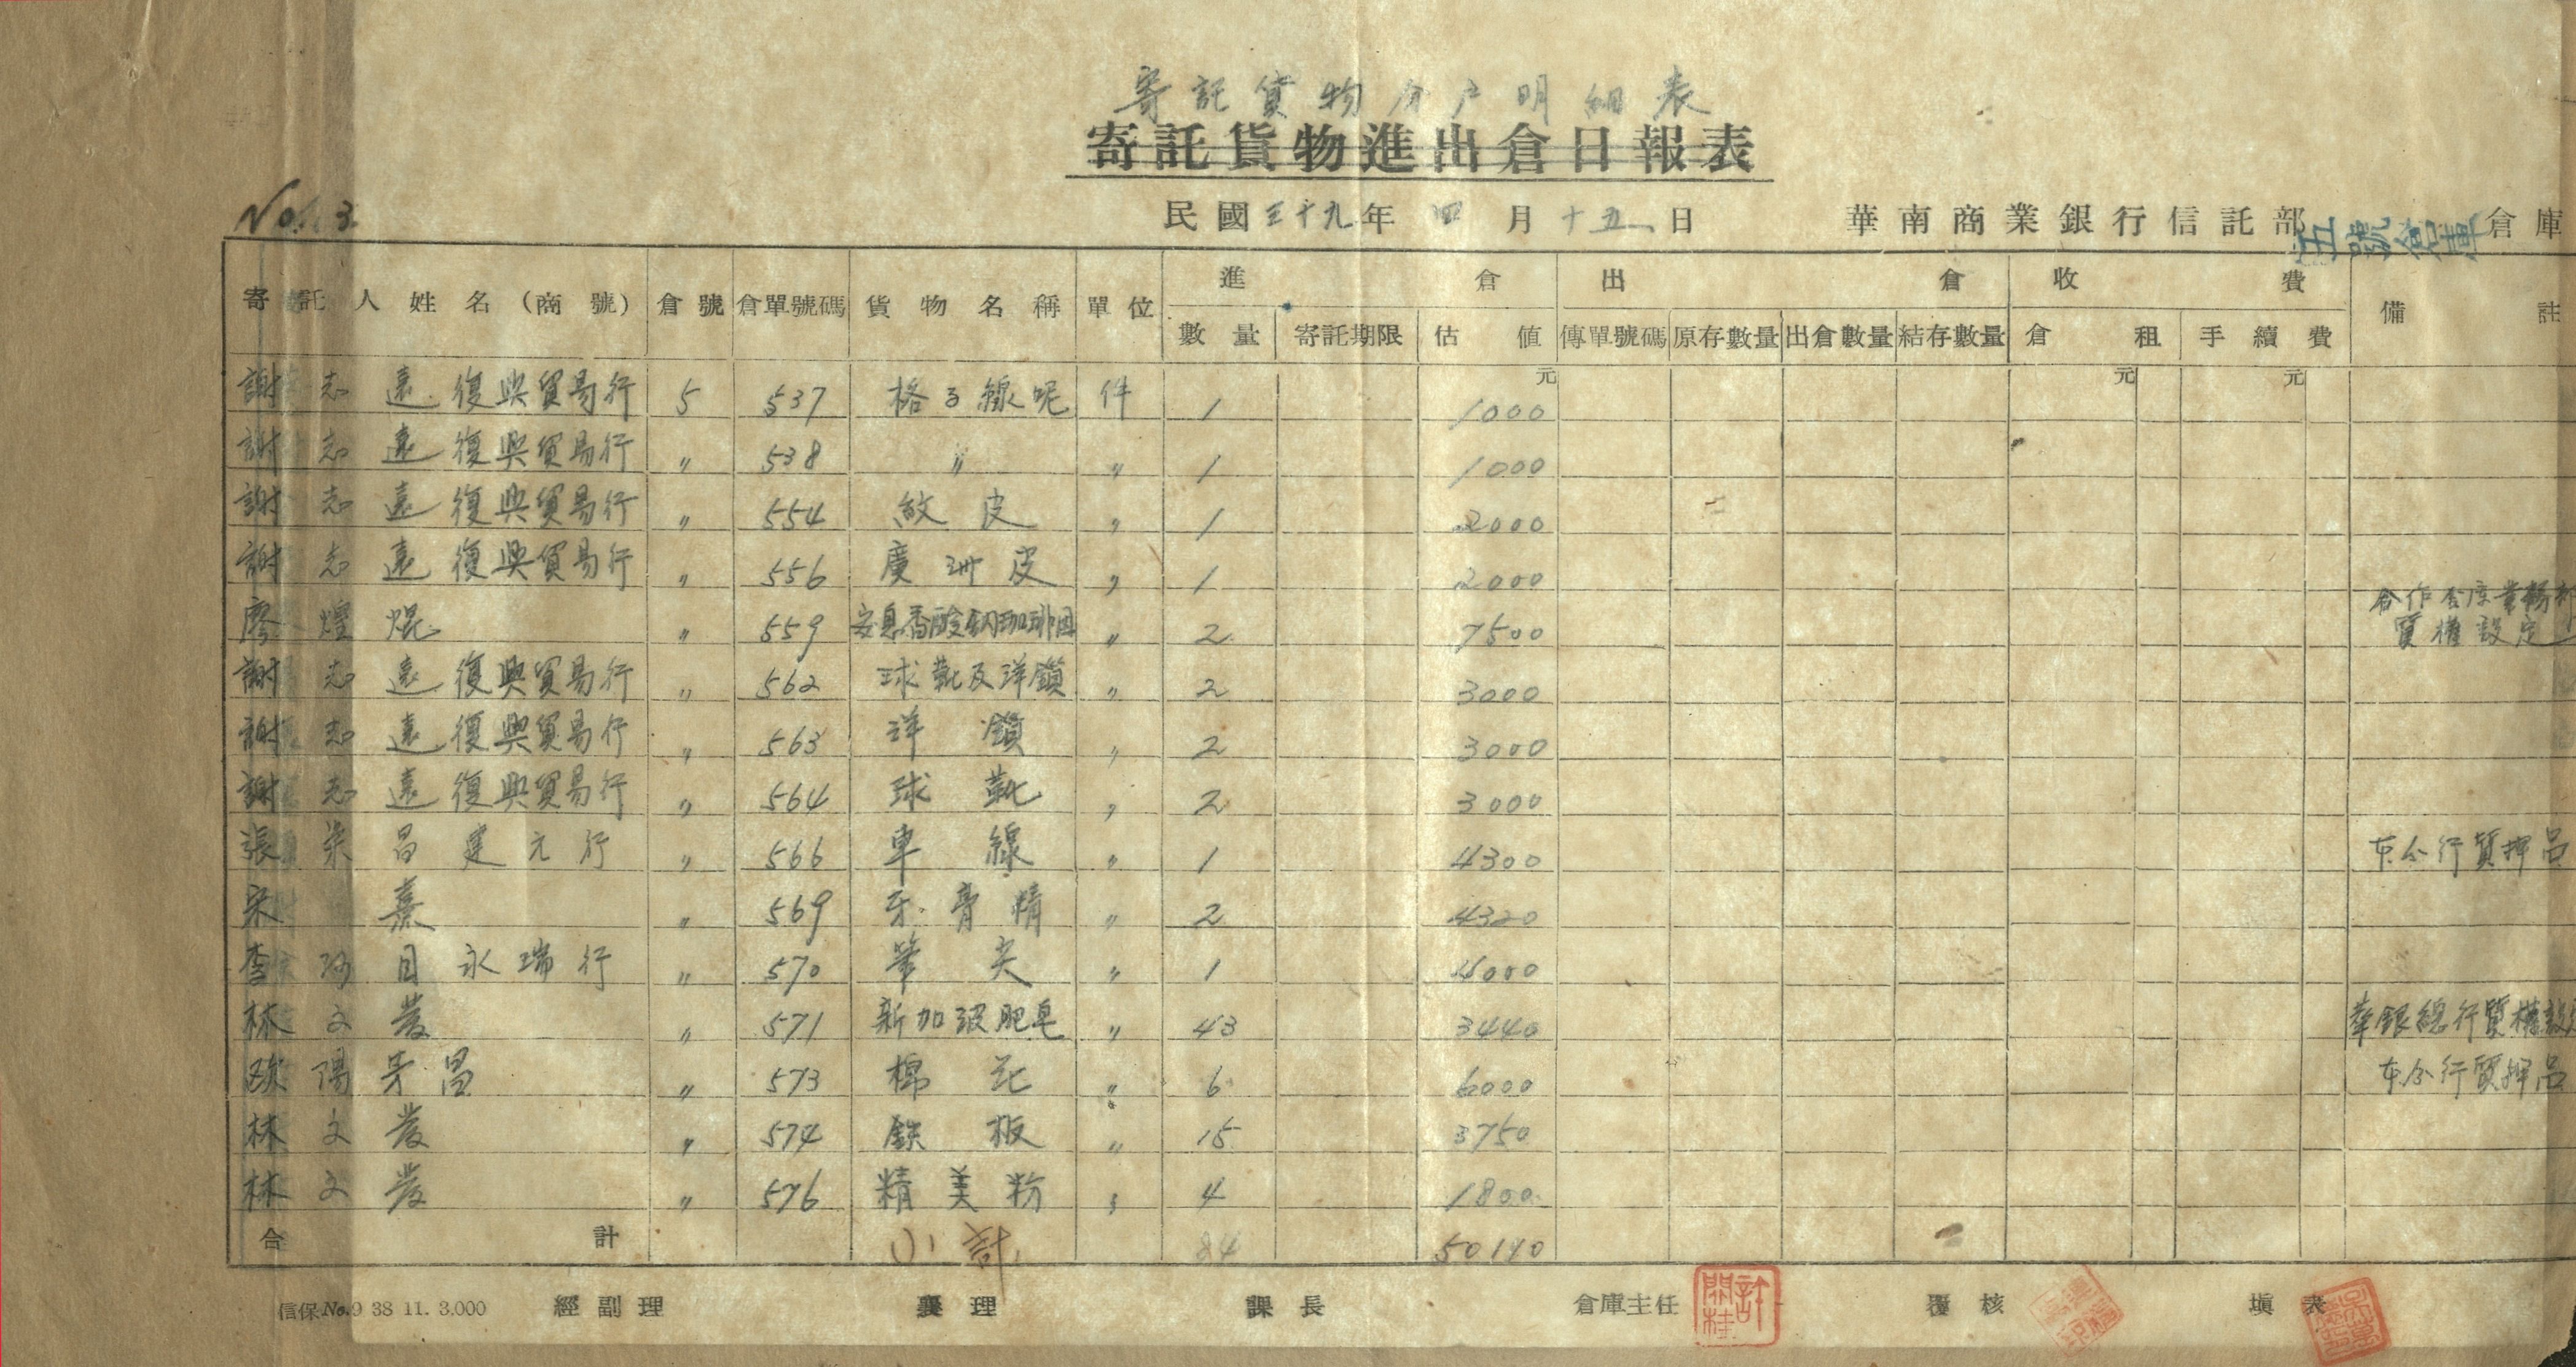 寄託貨物分户明細表
寄託貨物進出倉日報表
No. 3
民國三十九年 四 月 十五 日 華南商業銀行信託部 五號倉庫 倉庫
寄託人姓名(商號) 倉號 倉單號碼 貨物名稱 單位 進倉 出倉 收費 備註
數量 寄託期限 估值 傳單號碼 原存數量 出倉數量 結存數量 倉租 手續費
元 元 元
謝志遠 復興貿易行 5 537 格子線呢 件 1 1000
謝志遠 復興貿易行 〃 538 〃 〃 1 1000
謝志遠 復興貿易行 〃 554 紋皮 〃 1 2000
謝志遠 復興貿易行 〃 556 廣州皮 〃 1 2000
廖煌焜 〃 559 安息香酸鈉珈琲因 〃 2 7500 合作金庫業務部
質權設定
謝志遠 復興貿易行 〃 562 球靴及洋鎖 〃 2 3000
謝志遠 復興貿易行 〃 563 洋鎖 〃 2 3000
謝志遠 復興貿易行 〃 564 球靴 〃 2 3000
張 昌 建元行 〃 566 車線 〃 1 4300 本分行質押品
宋熹 〃 569 牙膏精 〃 2 4320
李 目 永瑞行 〃 570 筆尖 〃 1 4000
林文發 〃 571 新加波肥皂 〃 43 3440 華銀總行質權設定
歐陽 昌 〃 573 棉花 〃 6 6000 本分行質押品
林文發 〃 574 鉄板 〃 15 3750
林文發 〃 576 精美粉 〃 4 1800
合計 小計 84 50110
信保No.9 38 11. 3.000 經副理 襄理 課長 倉庫主任 許桂 覆核 填表